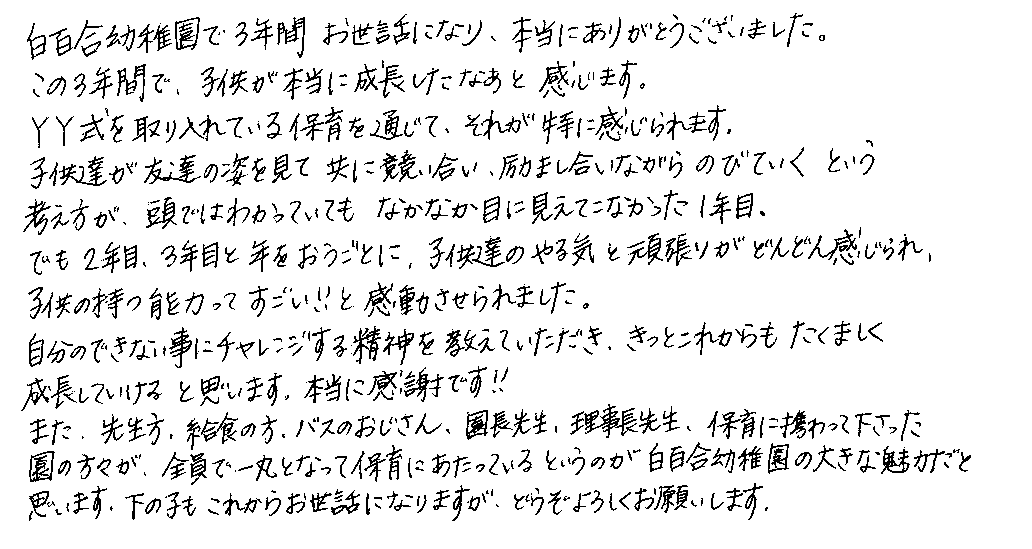 白百合幼稚園で3年間 お世話になり、本当にありがとうございました。
この3年間で、子供が本当に成長したなあと 感じます。
YY式を取り入れている保育を通じて、それが特に感じられます。
子供達が友達の姿を見て 共に競い合い、励まし合いながら のびていく という
考え方が、頭ではわかっていても なかなか目に見えてこなかった1年目。
でも2年目、3年目と 年をおうごとに、子供達のやる気と頑張りがどんどん感じられ、
子供の持つ能力って すごい!!と 感動させられました。
自分のできない事にチャレンジする精神を教えていただき、きっとこれからも たくましく
成長していけると思います。本当に感謝です!!
また、先生方、給食の方、バスのおじさん、園長先生、理事長先生、保育に携わって下さった
園の方々が、全員で一丸となって保育にあたっているというのが白百合幼稚園の大きな魅力だと
思います。下の子もこれからお世話になりますが、どうぞよろしくお願いします。